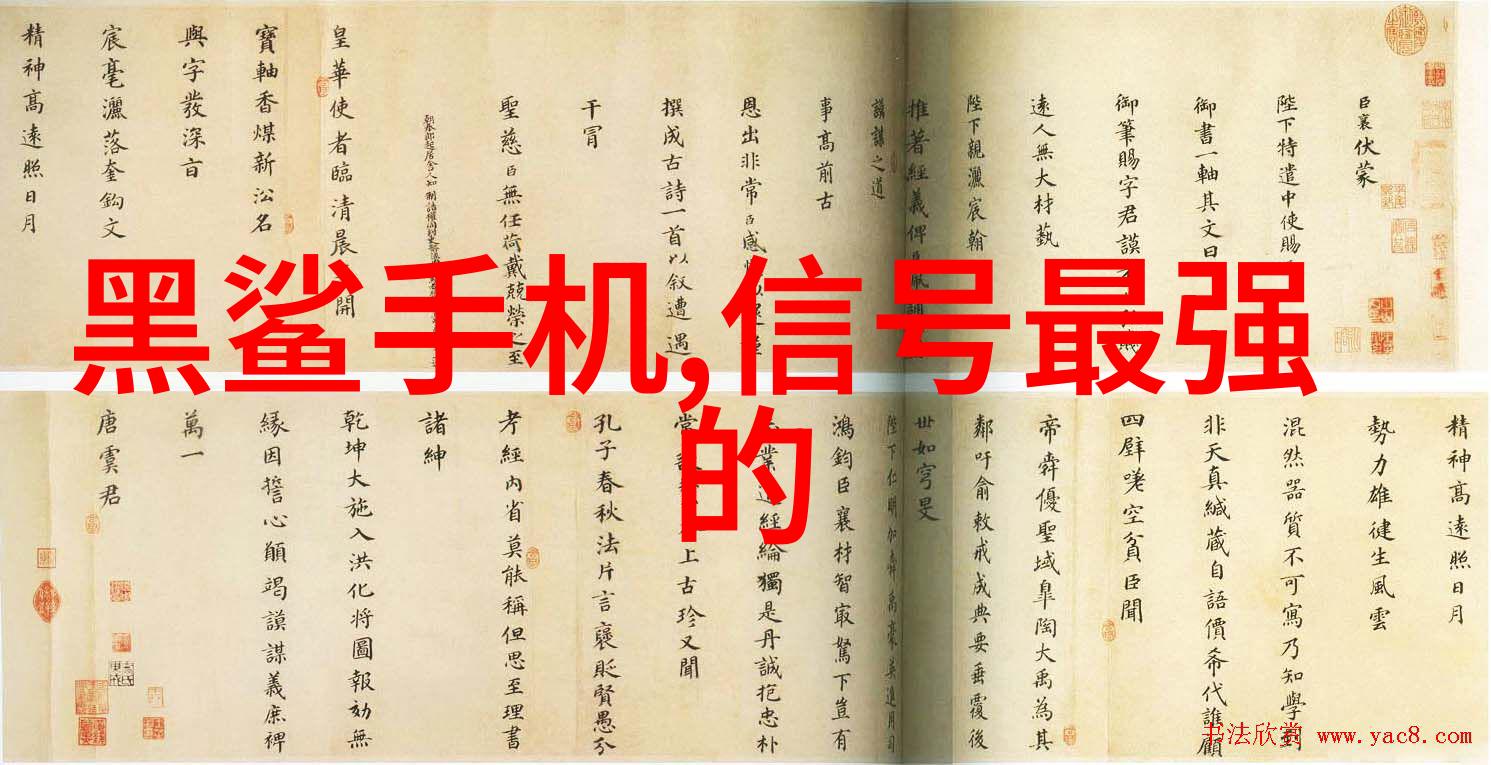 黑鲨手机,信号最强
的
臣襄伏蒙
陛下特遣中使賜
御書一軸其文曰
御筆賜字君謨
遠人無大材藝
陛下親灑宸翰
推著經義俾臣
謨謀之道
事高前古
恩出非常臣感
撰成古詩一首以叙遭遇
干冒
聖慈臣無任荷戴兢榮之至
皇華使者臨清晨
開
寶軸香煤新沿名
與字發深旨
宸毫灑落奎鈎文
精神高遠照日月
精神高遠照日月
勢力雄健生風雲
混然器質不可寫乃知學到
非天真緘藏自語價希代誰顧
四壁嗟空貧臣聞
帝舜優聖域臯陶大禹為其
鄰吁俞敕戒成典要垂覆後
世如穹旻
陛下仁明如舜禹豪英進用司
鴻鈞臣襄材智最駑下豈有
業過經綸獨是丹誠抱忠朴
常
上古珍又聞
孔子春秋法片言褒貶賢愚分
考經內省莫能稱但思至理書
諸紳
乾坤大施入洪化將圖報効無
緣因誓心願竭謨謀義庶裨
萬一
唐虞君
书法欣赏 www.yac8.com